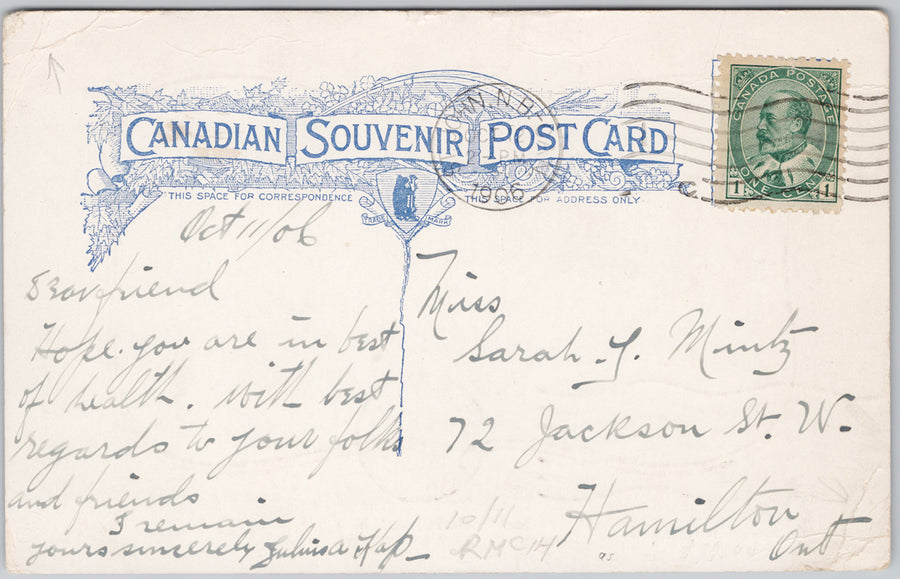 CANADIAN SOUVENIR POST CARD
THIS SPACE FOR CORRESPONDENCE
THIS SPACE FOR ADDRESS ONLY
TRADE MARK
N.H.
PM
1906
CANADA POSTAGE
1 ONE CENT 1
Oct 11/06
Dear friend
Hope you are in best
of health. With best
regards to your folks
and friends
I remain
yours sincerely
Miss
Sarah Mintz
72 Jackson St. W.
Hamilton
Ont
10/11
RMC14
95